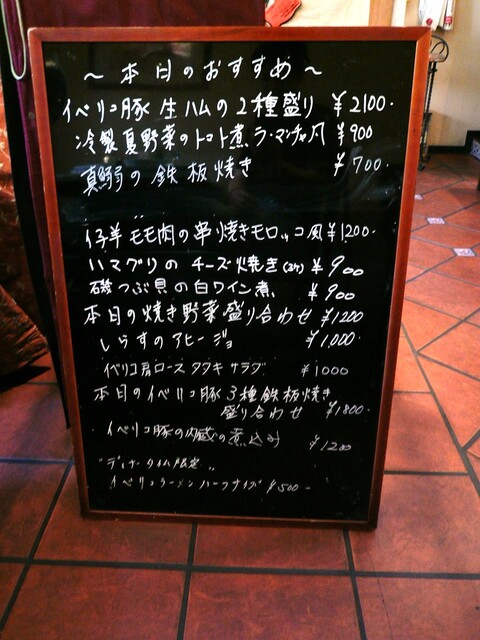 ～本日のおすすめ～
イベリコ豚 生ハムの2種盛り ¥2100.
冷製夏野菜のトマト煮 ラ・マンチャ風 ¥900
真鰯の鉄板焼き ¥700.
仔羊モモ肉の串焼きモロッコ風 ¥1200.
ハマグリのチーズ焼き(3ケ) ¥900
磯つぶ貝の白ワイン煮 ¥900
本日の焼き野菜盛り合わせ ¥1200
しらすのアヒージョ ¥1,000
イベリコ肩ロース タタキ サラダ ¥1000
本日のイベリコ豚3種鉄板焼き
盛り合わせ ¥1800.
イベリコ豚の内臓の煮込み ¥1200
"ディナータイム限定"
イベリコラーメン ハーフサイズ ¥500-